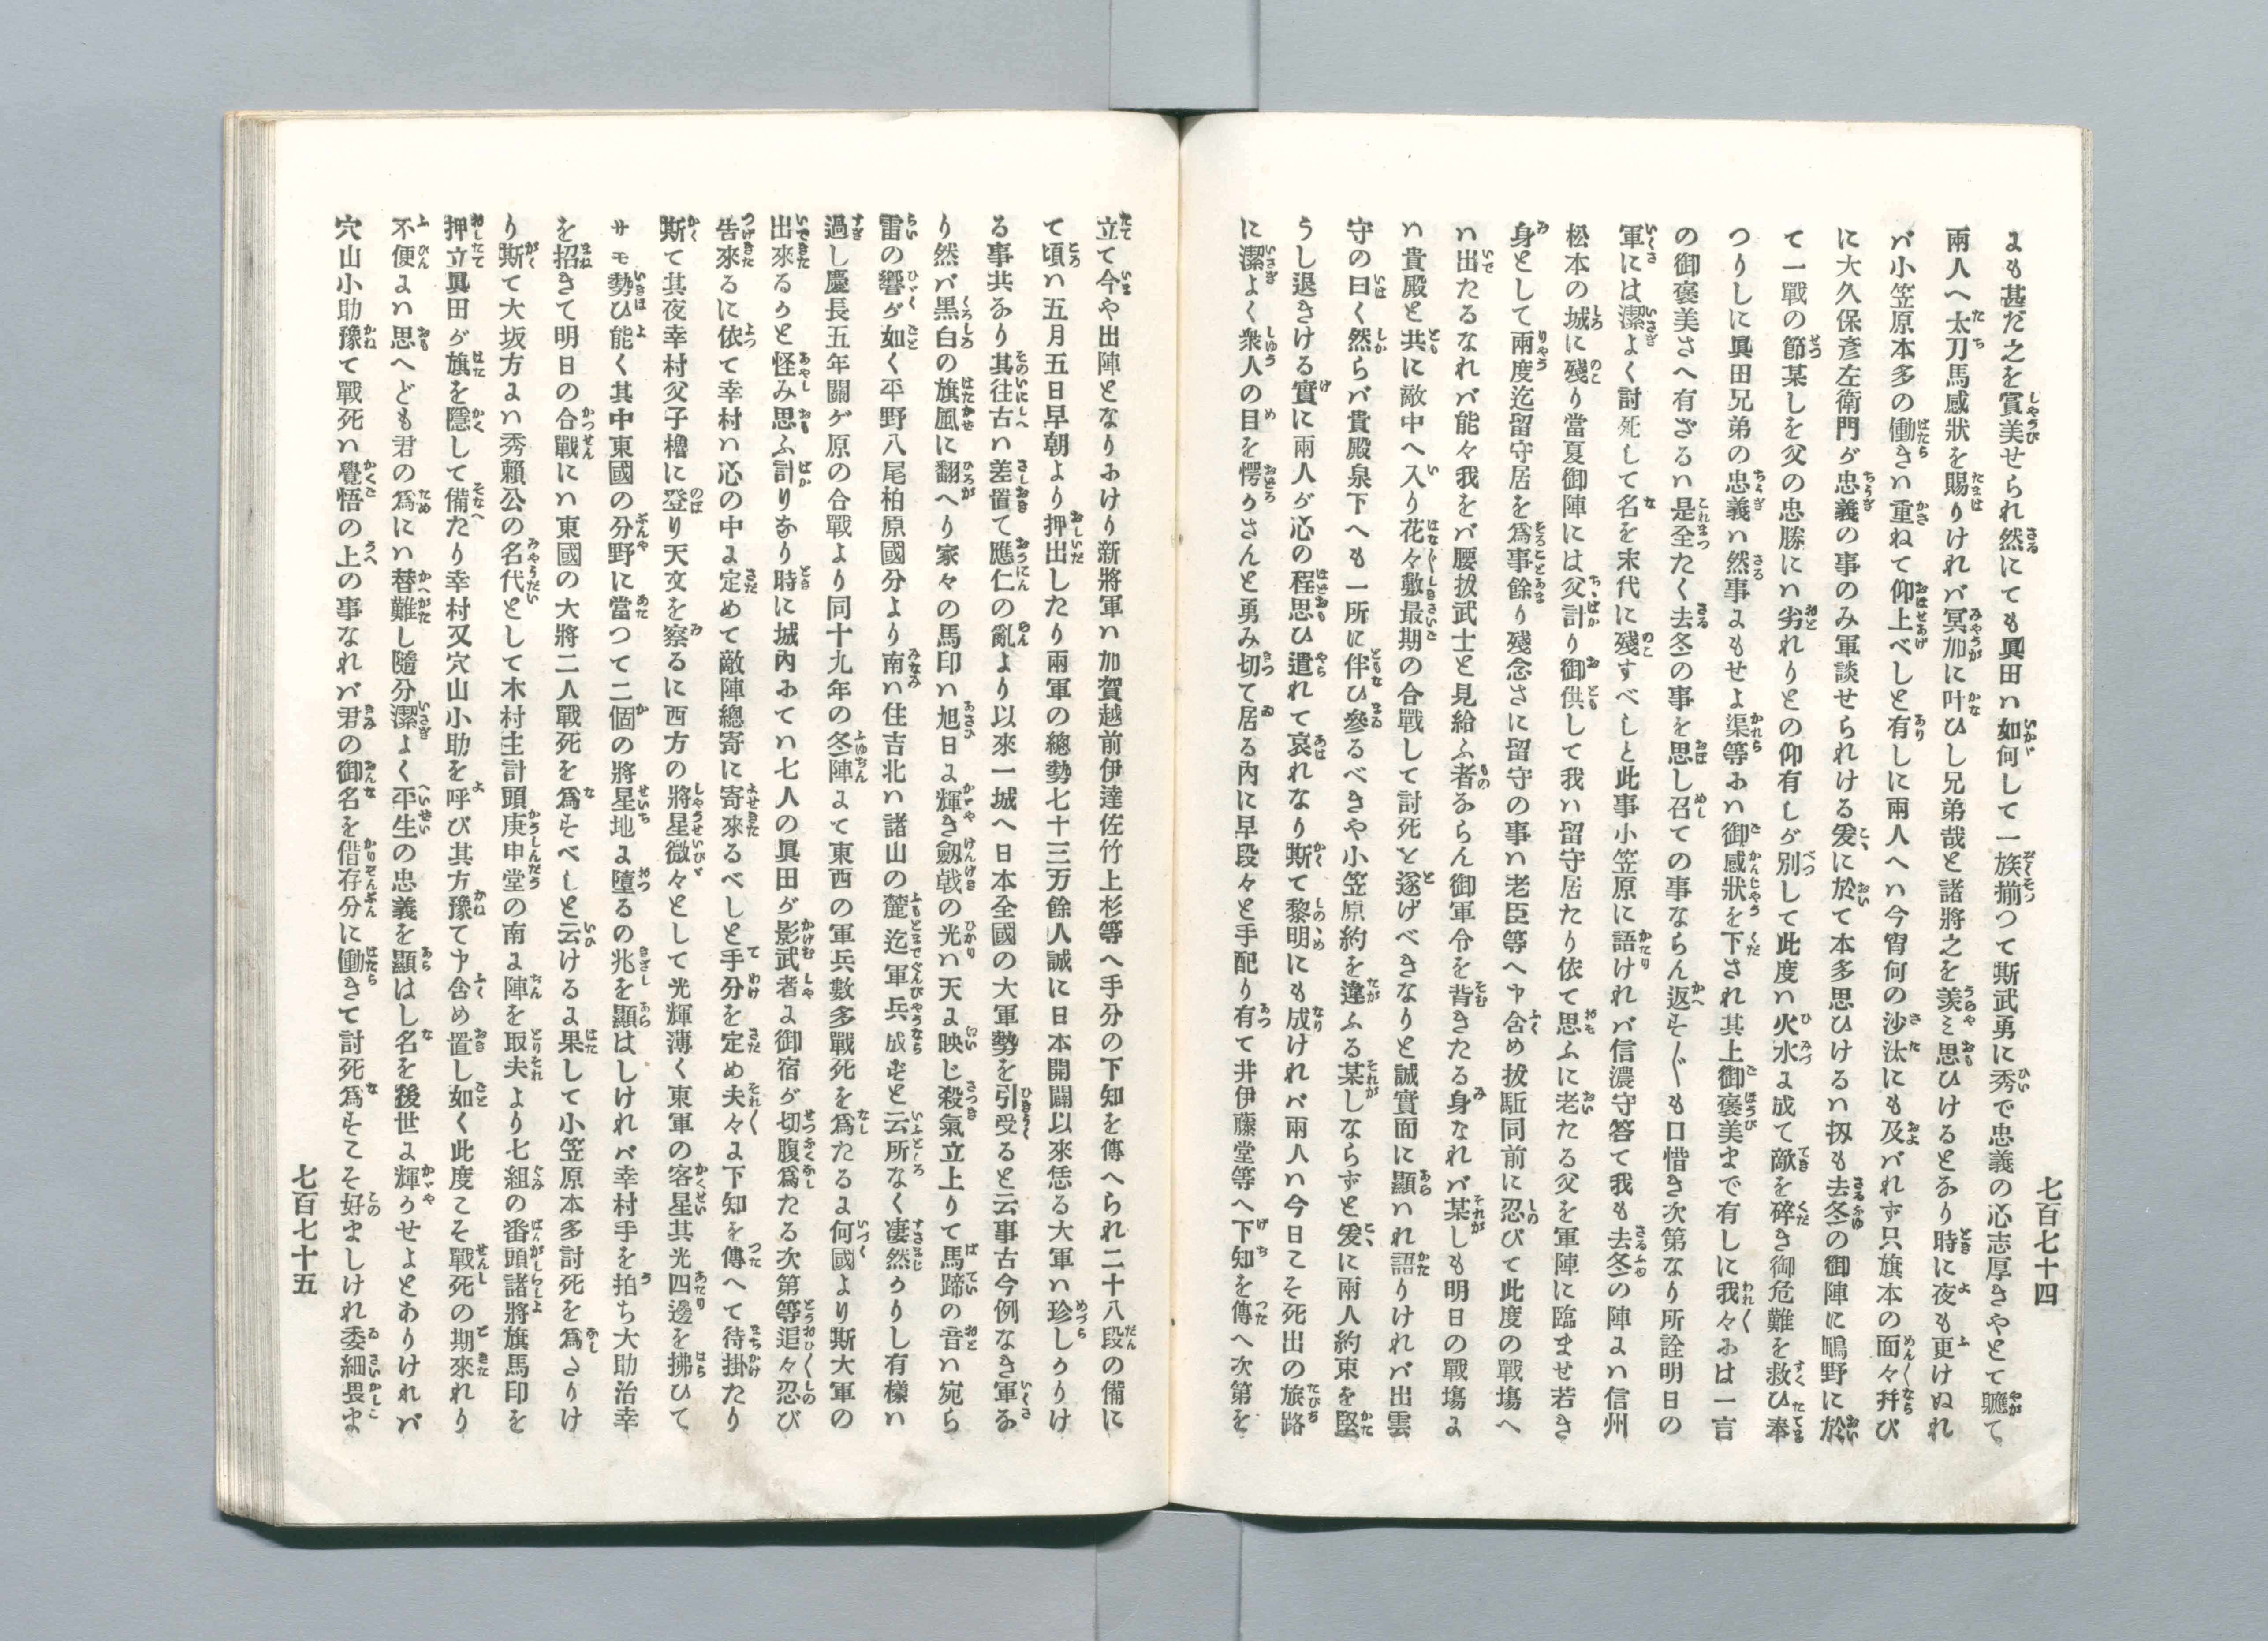 七百七十四
にも甚だ之を賞美せられ然にても眞田ハ如何して一族揃つて斯武勇に秀で忠義の心志厚きやとて軈て
兩人へ太刀馬感狀を賜りけれバ冥加に叶ひし兄弟哉と諸將之を羨ミ思ひけるとなり時に夜も更けぬれ
バ小笠原本多の働きハ重ねて仰上べしと有しに兩人へハ今宵何の沙汰にも及バれず只旗本の面々幷び
に大久保彥左衛門が忠義の事のみ軍談せられける爰に於て本多思ひけるハ扨も去冬の御陣に鴫野に於
て一戰の節某しを父の忠勝にハ劣れりとの仰有しが別して此度ハ火水に成て敵を碎き御危難を救ひ奉
つりしに眞田兄弟の忠義ハ然事にもせよ渠等にハ御感狀を下され其上御褒美まで有しに我々には一言
の御褒美さへ有ざるハ是全たく去冬の事を思し召ての事ならん返す〴〵も口惜き次第なり所詮明日の
軍には潔よく討死して名を末代に殘すべしと此事小笠原に語けれバ信濃守答て我も去冬の陣にハ信州
松本の城に殘り當夏御陣には父計り御供して我ハ留守居たり依て思ふに老たる父を軍陣に臨ませ若き
身として兩度迄留守居を爲事餘り殘念さに留守の事ハ老臣等へ申含め拔駈同前に忍びて此度の戰塲へ
ハ出たるなれバ能々我をバ腰拔武士と見給ふ者ならん御軍令を背きたる身なれバ某しも明日の戰塲に
ハ貴殿と共に敵中へ入り花々敷最期の合戰して討死を遂げべきなりと誠實面に顯ハれ語りけれバ出雲
守の曰く然らバ貴殿泉下へも一所に伴ひ參るべきや小笠原約を違ふる某しならずと爰に兩人約束を堅
うし退きける實に兩人が心の程思ひ遣れて哀れなり斯て黎明にも成けれバ兩人ハ今日こそ死出の旅路
に潔よく衆人の目を愕かさんと勇み切て居る內に早段々と手配り有て井伊藤堂等へ下知を傳へ次第を
立て今や出陣となりにけり新將軍ハ加賀越前伊達佐竹上杉等へ手分の下知を傳へられ二十八段の備に
て頃ハ五月五日早朝より押出したり兩軍の總勢七十三万餘人誠に日本開闢以來恁る大軍ハ珍しかりけ
る事共なり其往古ハ差置て應仁の亂より以來一城へ日本全國の大軍勢を引受ると云事古今例なき軍な
り然バ黑白の旗風に翻へり家々の馬印ハ旭日に輝き劔戟の光ハ天に映じ殺氣立上りて馬蹄の音ハ宛ら
雷の響が如く平野八尾柏原國分より南ハ住吉北ハ諸山の麓迄軍兵成ずと云所なく凄然かりし有樣ハ
過し慶長五年關ケ原の合戰より同十九年の冬陣にて東西の軍兵數多戰死を爲たるに何國より斯大軍の
出來るかと怪み思ふ計りなり時に城內にてハ七人の眞田が影武者に御宿が切腹爲たる次第等追々忍び
告來るに依て幸村ハ心の中に定めて敵陣總寄に寄來るべしと手分を定め夫々に下知を傳へて待掛たり
斯て其夜幸村父子櫓に登り天文を察るに西方の將星微々として光輝薄く東軍の客星其光四邊を拂ひて
サモ勢ひ能く其中東國の分野に當つて二個の將星地に墮るの兆を顯はしけれバ幸村手を拍ち大助治幸
を招きて明日の合戰にハ東國の大將二人戰死を爲すべしと云けるに果して小笠原本多討死を爲さりけ
り斯て大坂方にハ秀賴公の名代として木村主計頭庚申堂の南に陣を取夫より七組の番頭諸將旗馬印を
押立眞田が旗を隱して備たり幸村又穴山小助を呼び其方豫て申含め置し如く此度こそ戰死の期來れり
不便にハ思へども君の爲にハ替難し隨分潔よく平生の忠義を顯はし名を後世に輝かせよとありけれバ
穴山小助豫て戰死ハ覺悟の上の事なれバ君の御名を借存分に働きて討死爲すこそ好ましけれ委細畏ま
七百七十五